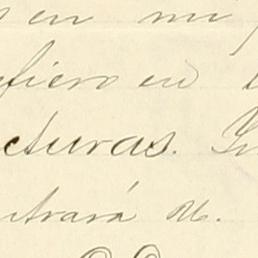 en mi
fiero en
cturas.
ntrará U.